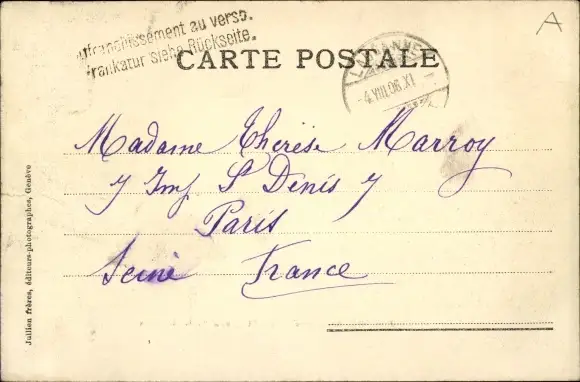 Affranchissement au verso.
Frankatur siehe Rückseite.
A
CARTE POSTALE
LAUSANNE
-4.VIII.06.XI-
Madame Thérèse Marroy
7 Imp St Denis 7
Paris
Seine France
Jullien frères, éditeurs-photographes, Genève